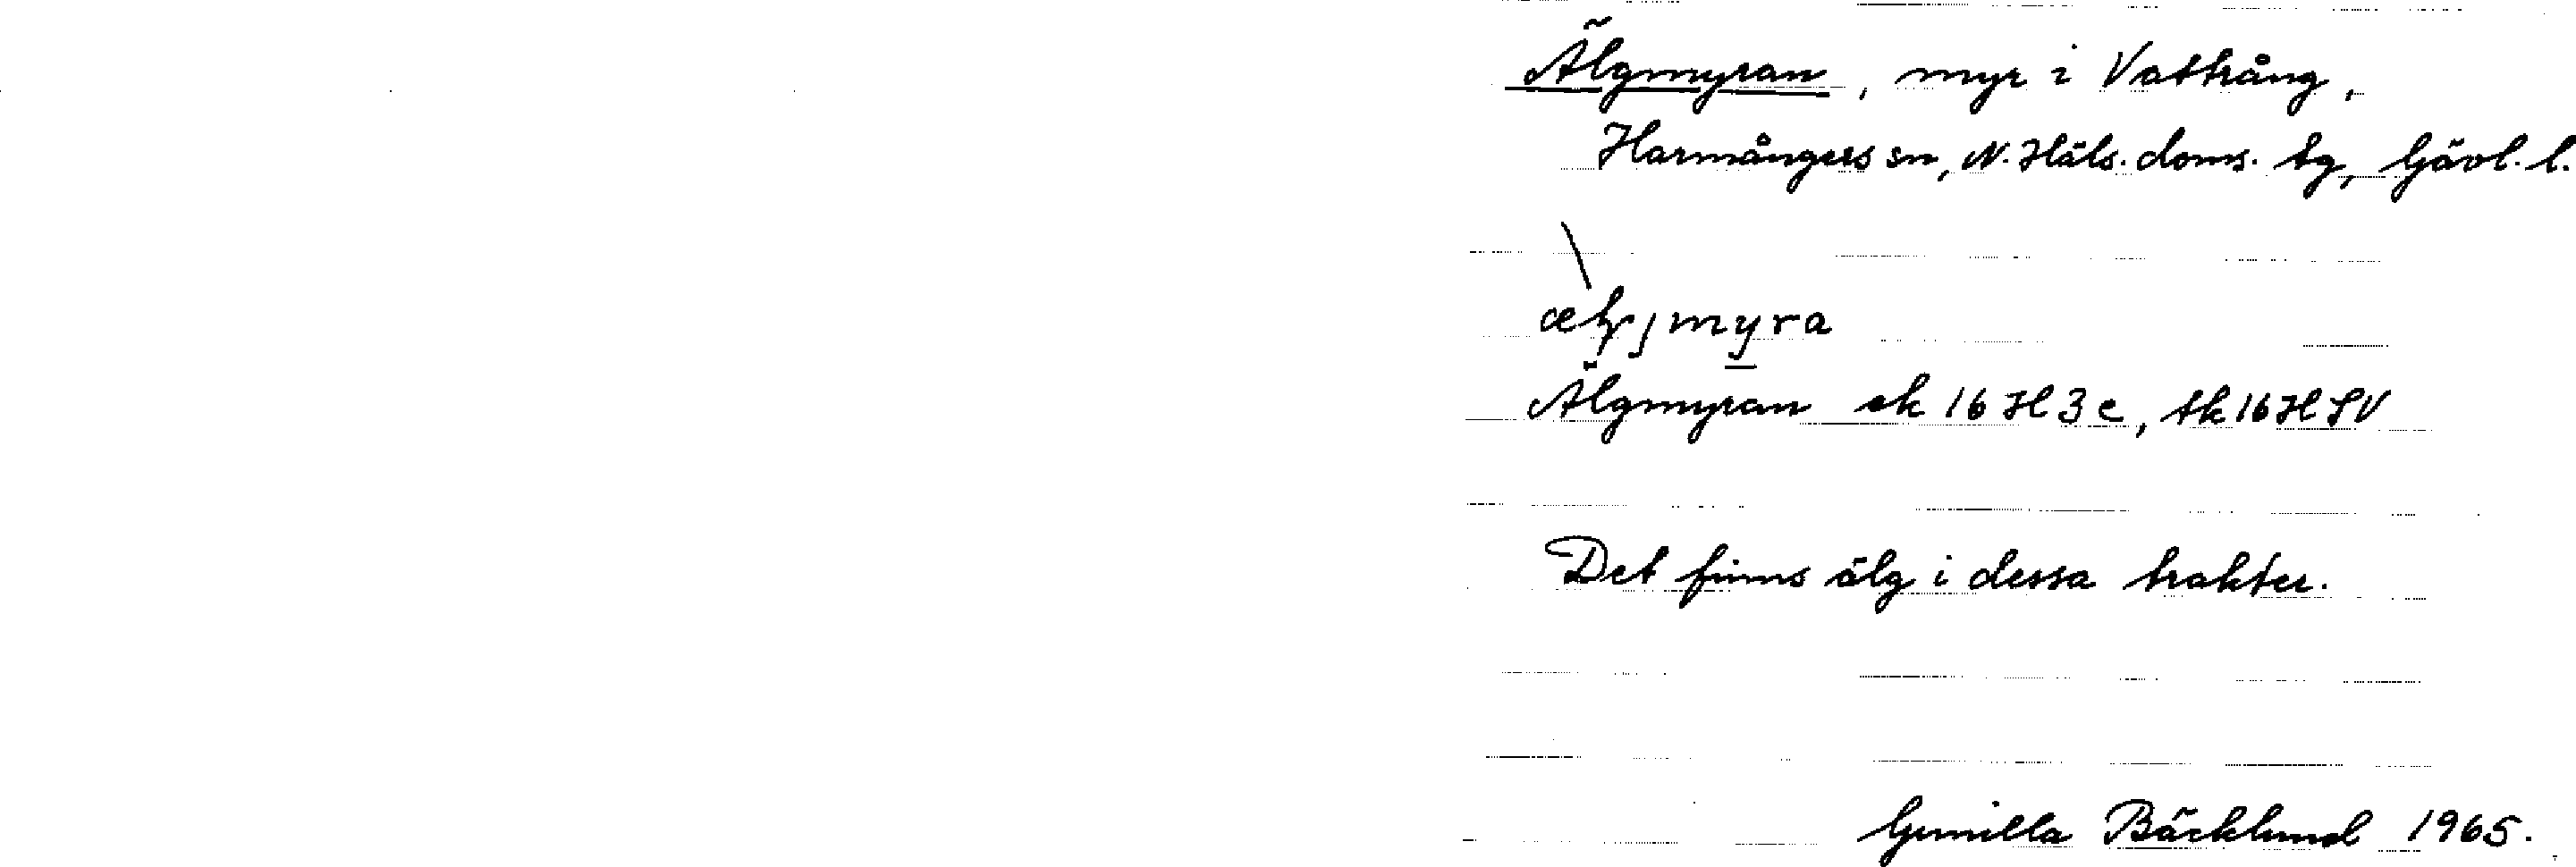 Älgmyran, myr i Vattrång,
Harmångers sn, N. Häls. doms. tg, Gävl. l.
Älgmyran ek 16 H 3 c, tk 16 H SV
Det finns älg i dessa trakter.
Gunilla Bäcklund 1965.